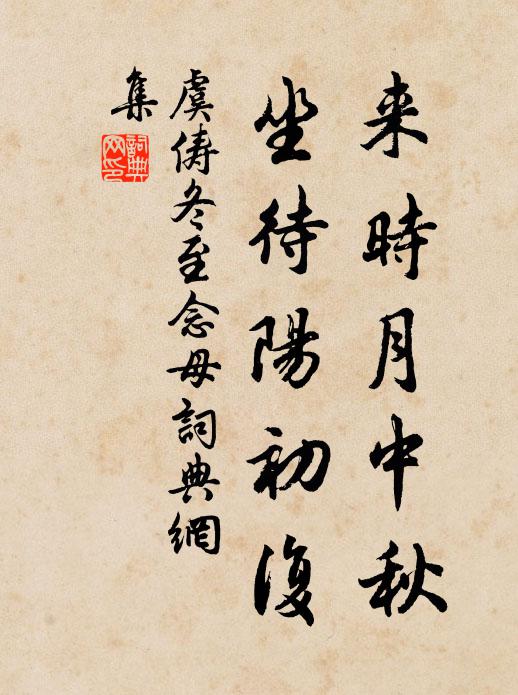 来時月中秋
坐待陽初復
虞儔冬至念母詞典網
集
詞典
网印